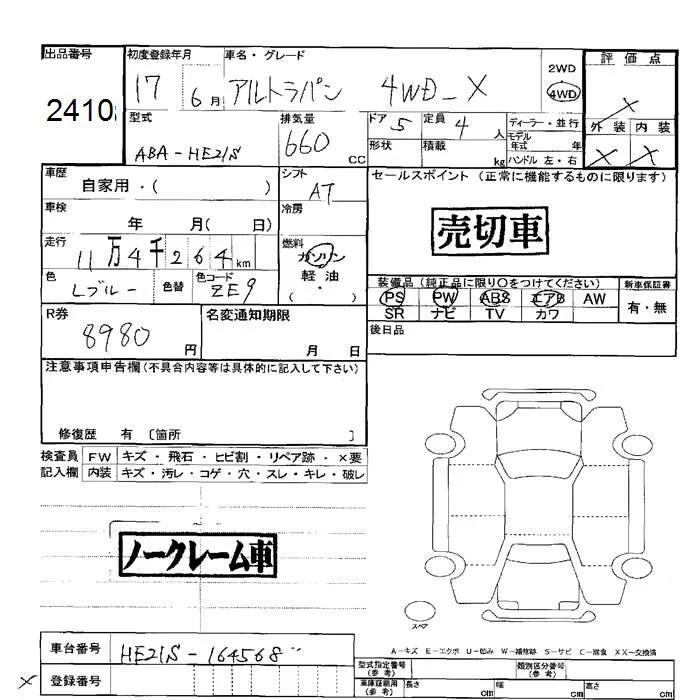 出品番号
2410
初度登録年月
17 6月
車名・グレード
アルトラパン 4WD-X
2WD
4WD
評価点
X
外装 内装
X X
型式
ABA-HE21S
排気量
660 CC
ドア 5
定員 4 人
形状
積載 kg
ディーラー・並行
モデル年式 年
ハンドル 左・右
車歴
自家用・( )
シフト
AT
セールスポイント (正常に機能するものに限ります)
売切車
車検
年 月( 日)
冷房
走行
11万4千264km
燃料
ガソリン
軽・油
( ・ )
色
Lブルー
色替
色コード
ZE9
装備品 (純正品に限り○をつけてください)
PS PW ABS エアB AW
SR ナビ TV カワ
新車保証書
有・無
R券
8980 円
名変通知期限
月 日
後日品
注意事項申告欄(不具合内容等は具体的に記入して下さい)
修復歴 有 〔箇所 〕
検査員記入欄
FW キズ・飛石・ヒビ割・リペア跡・×要
内装 キズ・汚レ・コゲ・穴・スレ・キレ・破レ
ノークレーム車
スペア
A-キズ E-エクボ U-凹み W-補修跡 S-サビ C-腐食 XX-交換済
車台番号
HE21S-164568
× 登録番号
型式指定番号
(参考)
類別区分番号
(参考)
車庫証明用
(参考)
長さ cm
幅 cm
高さ cm